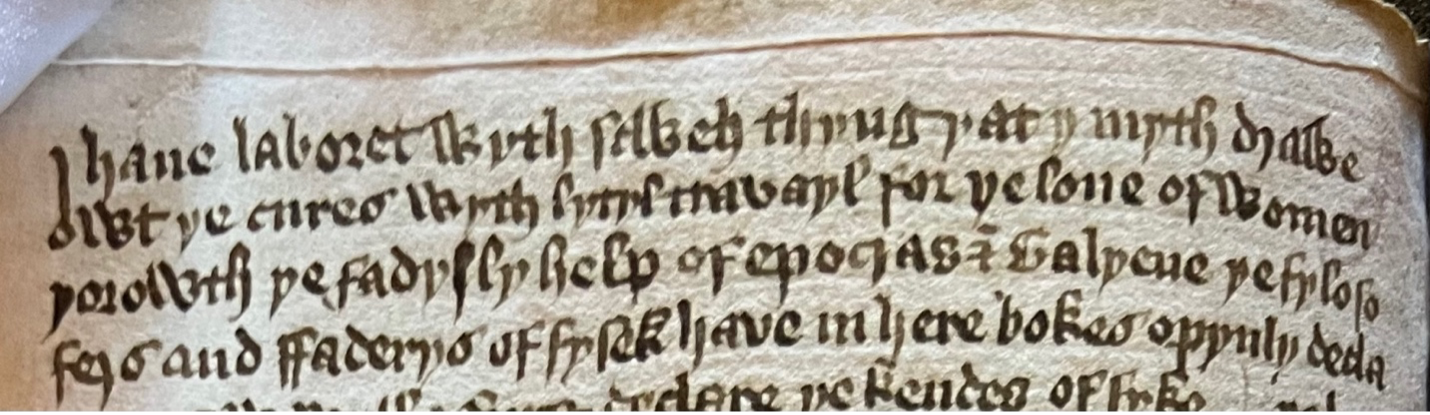 I haue laboret wyth swech thyng yat y myth drawe
owt ye cures wyth lytyl travayl for ye loue of women
yorowth ye fadyrly help of epocras & Galyene ye fyloso
ferys and ffaderys of fysek have in here bokes oppynly decla
declare ye kendes of